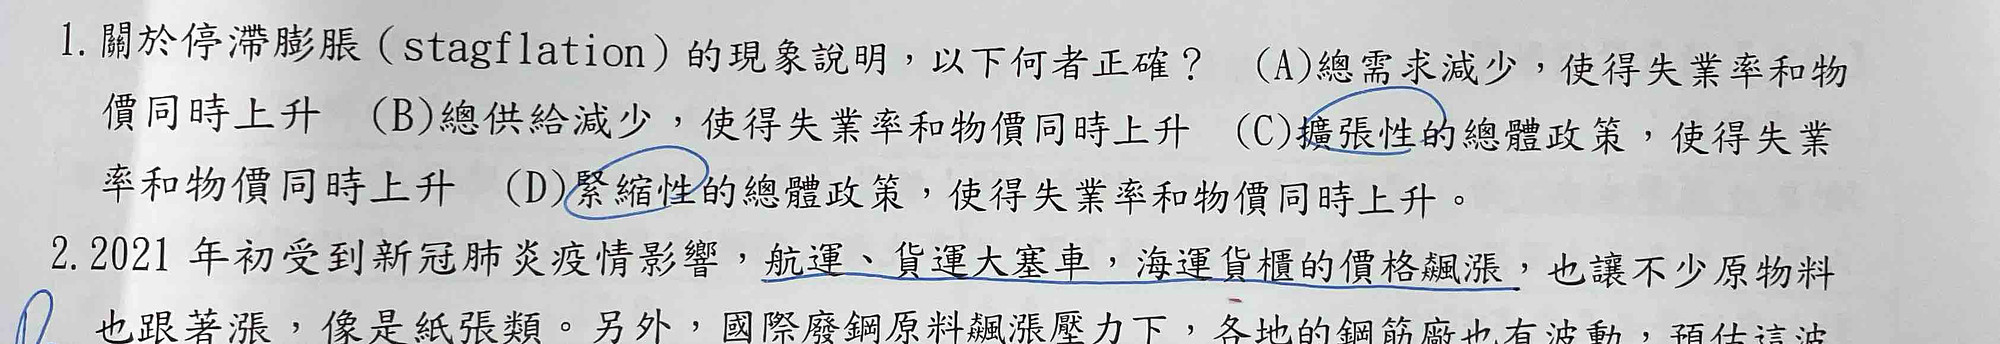 1. 關於停滯膨脹（stagflation）的現象說明，以下何者正確？ (A)總需求減少，使得失業率和物
價同時上升 (B)總供給減少，使得失業率和物價同時上升 (C)擴張性的總體政策，使得失業
率和物價同時上升 (D)緊縮性的總體政策，使得失業率和物價同時上升。
2. 2021 年初受到新冠肺炎疫情影響，航運、貨運大塞車，海運貨櫃的價格飆漲，也讓不少原物料
也跟著漲，像是紙張類。另外，國際廢鋼原料飆漲壓力下，各地的鋼筋廠也有波動，預估這波